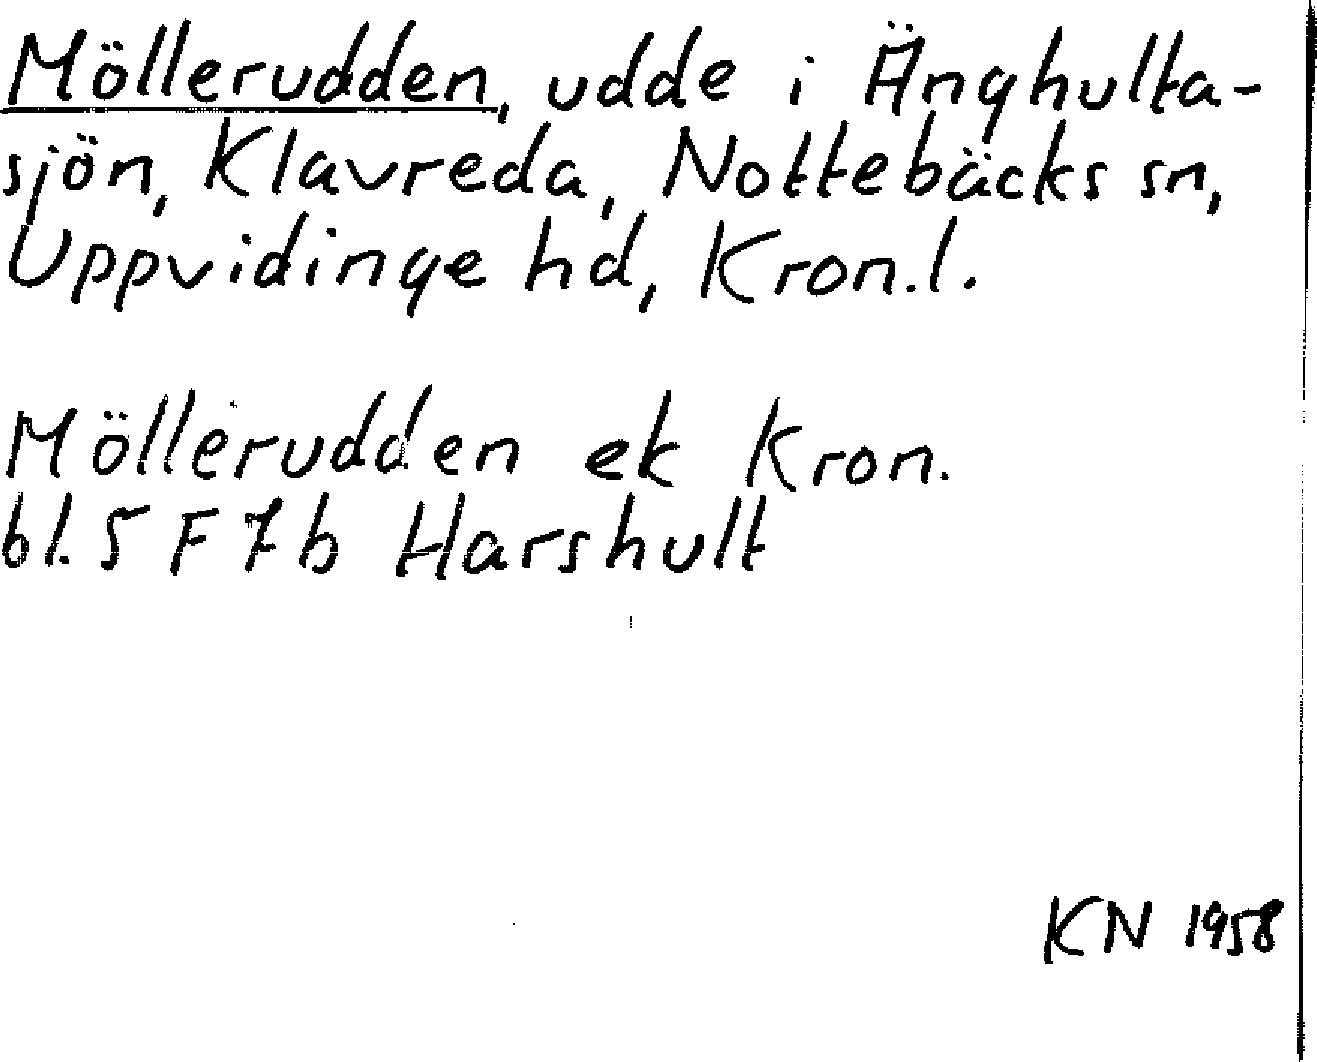 Möllerudden, udde i Änghulta-
sjön, Klavreda, Nottebäcks sn,
Uppvidinge hd, Kron.l.
Möllerudden ek Kron.
bl. 5 F 7b Harshult
KN 1958